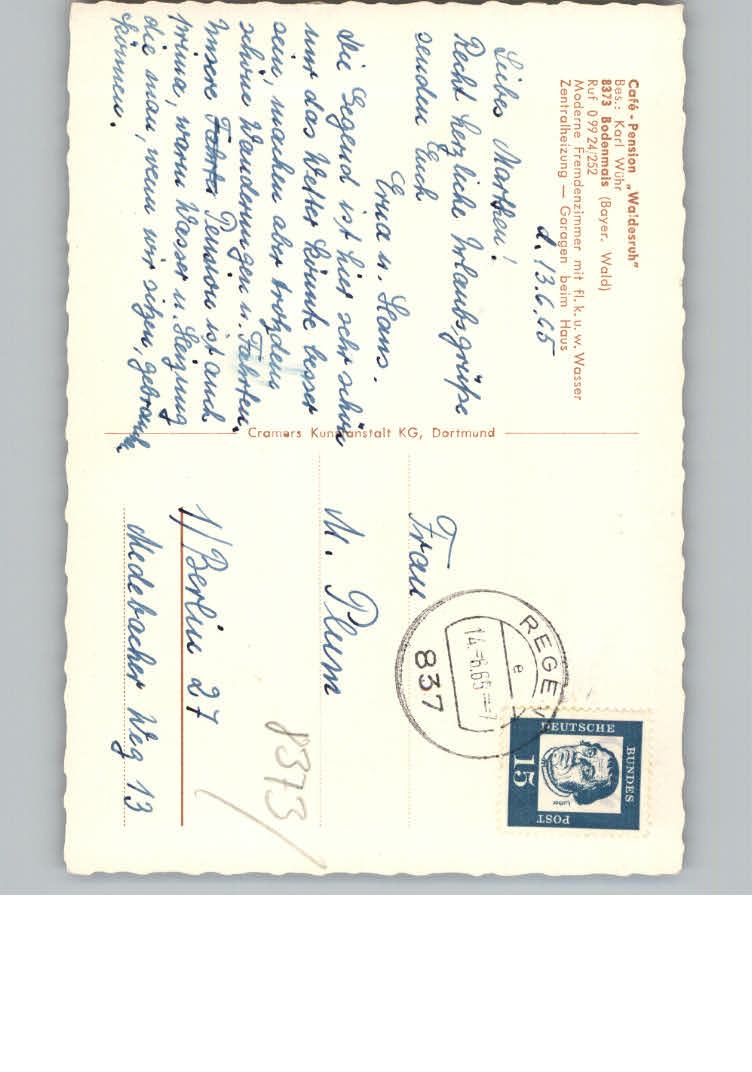 Café - Pension „Waldesruh"
Bes.: Karl Wühr
8373 Bodenmais (Bayer. Wald)
Ruf 0 99 24/252
Moderne Fremdenzimmer mit fl. k. u. w. Wasser
Zentralheizung — Garagen beim Haus
d. 13.6.65
Liebes Marthen!
Recht herzliche Urlaubsgrüße
senden Euch
Erna u. Hans.
Die Gegend ist hier sehr schön
nur das Wetter könnte besser
sein, machen aber trotzdem
schöne Wanderungen u. Fahrten.
Unsere Fahrt Pension ist auch
prima, warm Wasser u. Heizung
die man, wenn wir sitzen, gebrauch
können.
Cramers Kunstanstalt KG, Dortmund
Frau
M. Plum
1/Berlin 27
Medebacher Weg 13
8373
REGEN
e
14.-6.65--7
837
DEUTSCHE
BUNDES
POST
15
Luther